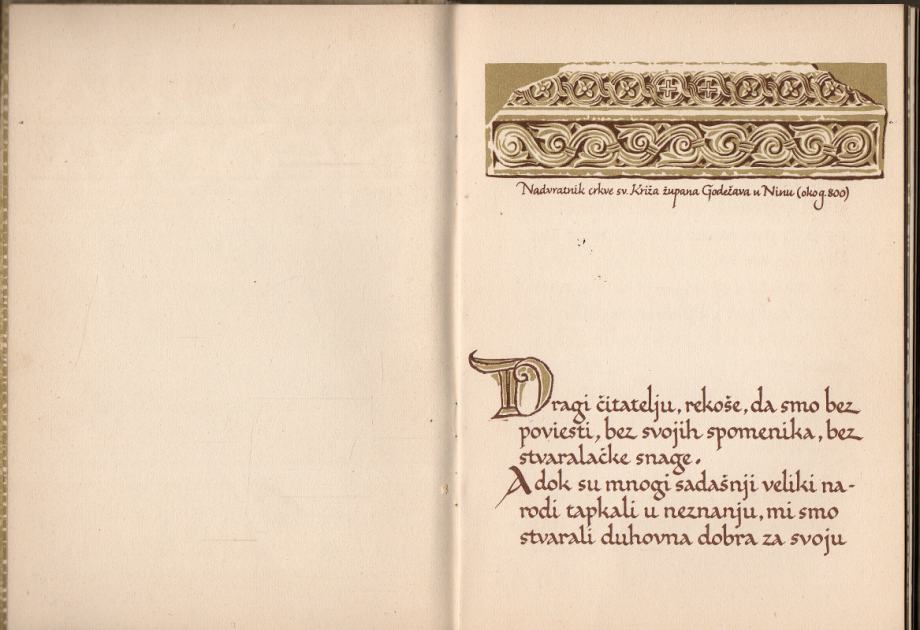 Nadvratnik crkve sv. Križa župana Godežava u Ninu (oko g. 800)
Dragi čitatelju, rekoše, da smo bez
poviesti, bez svojih spomenika, bez
stvaralačke snage.
A dok su mnogi sadašnji veliki na-
rodi tapkali u neznanju, mi smo
stvarali duhovna dobra za svoju